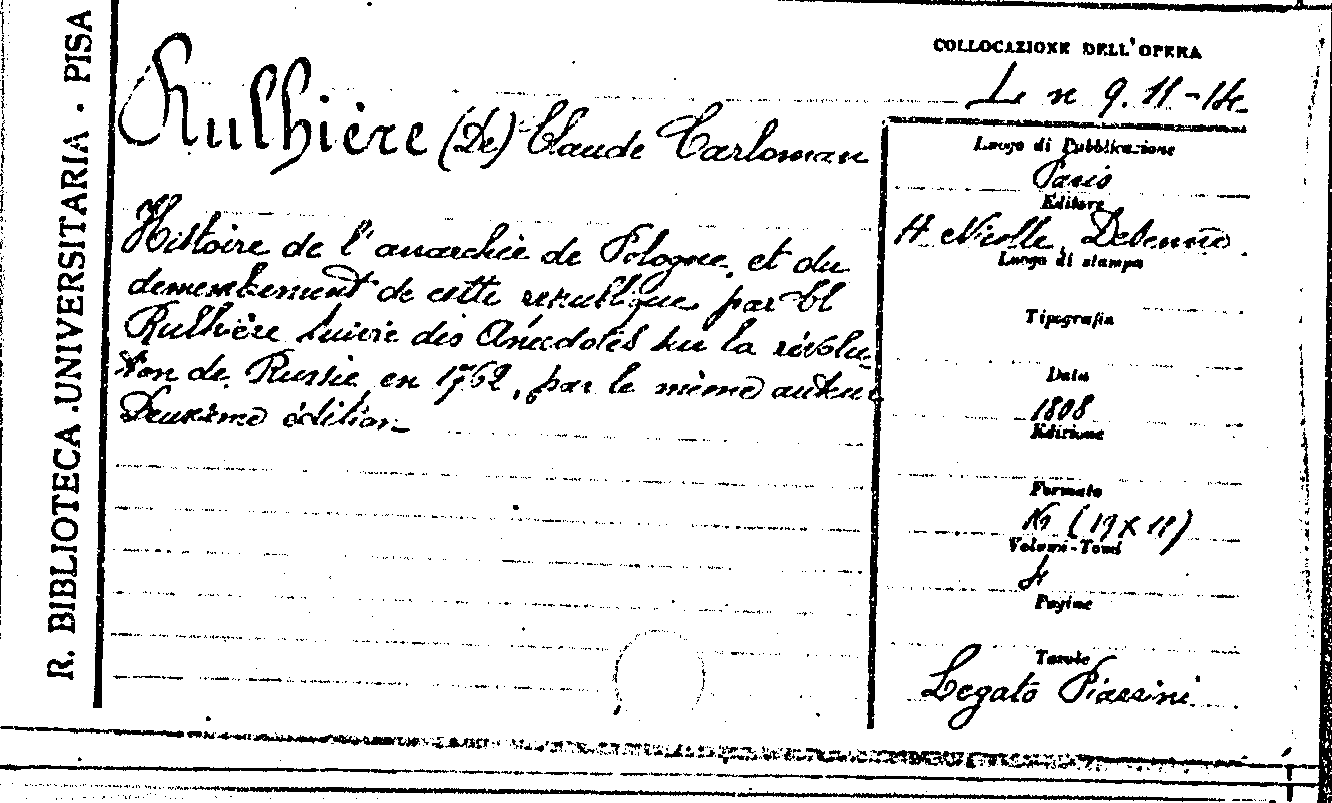 R. BIBLIOTECA UNIVERSITARIA · PISA
COLLOCAZIONE DELL'OPERA
L n 9. 11-14
Rulhière (De) Claude Carloman
Histoire de l'anarchie de Pologne, et du
demembrement de cette republique par Cl
Rulhière suivie des Anecdotes sur la révolu-
tion de Russie en 1762, par le même auteur
Deuxième édition
Luogo di Pubblicazione
Paris
Editore
H Nicolle, Desenne
Luogo di stampa
Tipografia
Data
1808
Edizione
Formato
(19 X 11)
Volumi-Tomi
4
Pagine
Tavole
Legato Piazzini